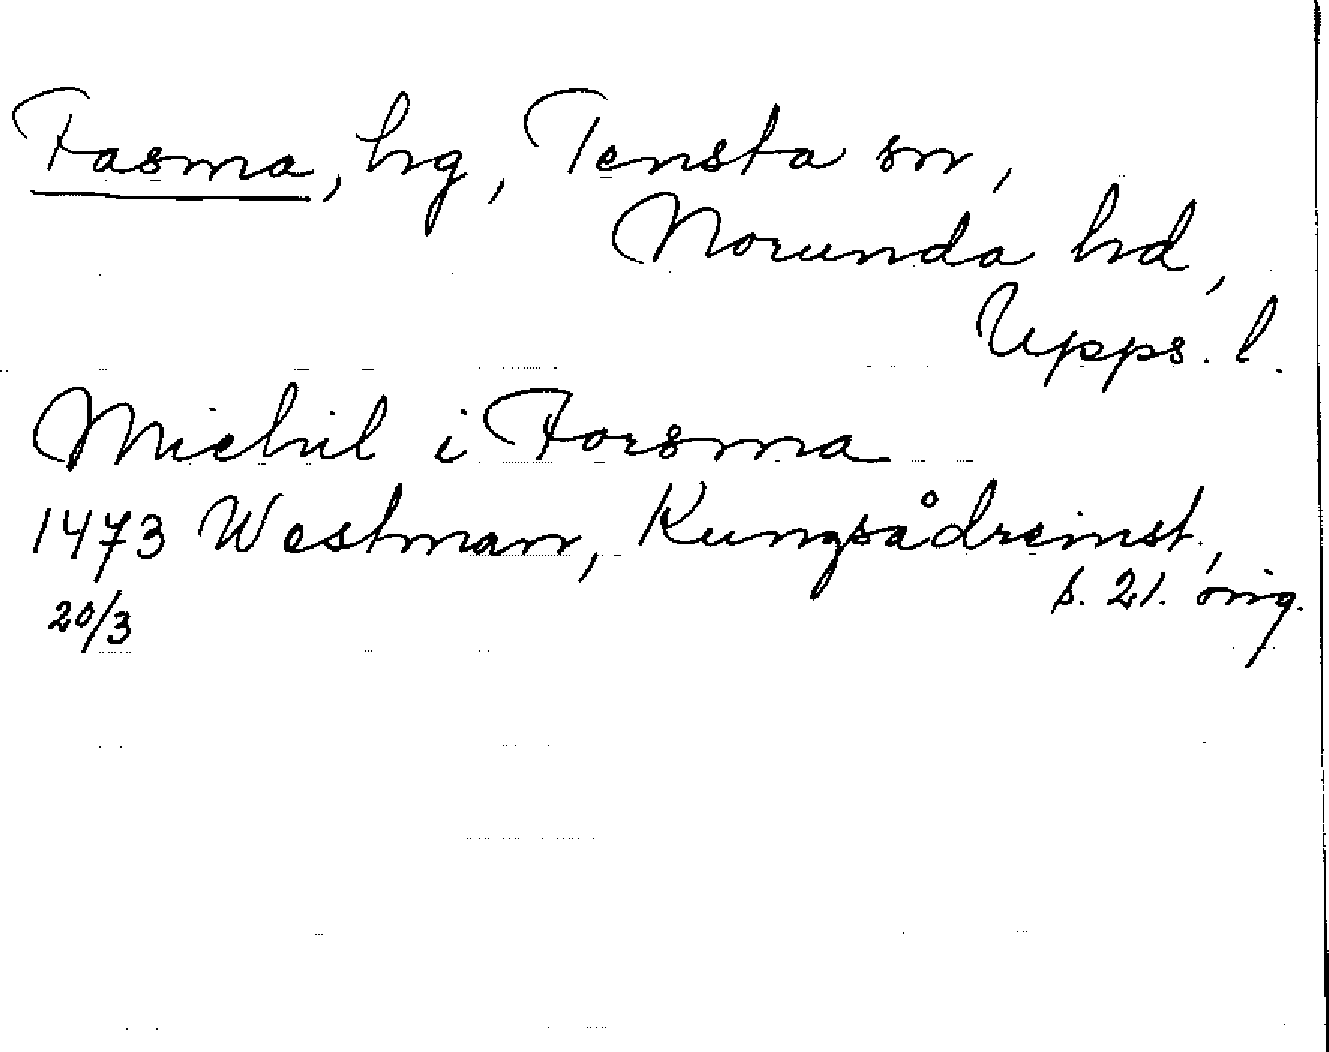 Fasma, hg, Tensta sn,
Norunda hd,
Upps. l.
Michil i Forsma
1473 Westman, Kungsådreinst.,
20/3 s. 21. orig.